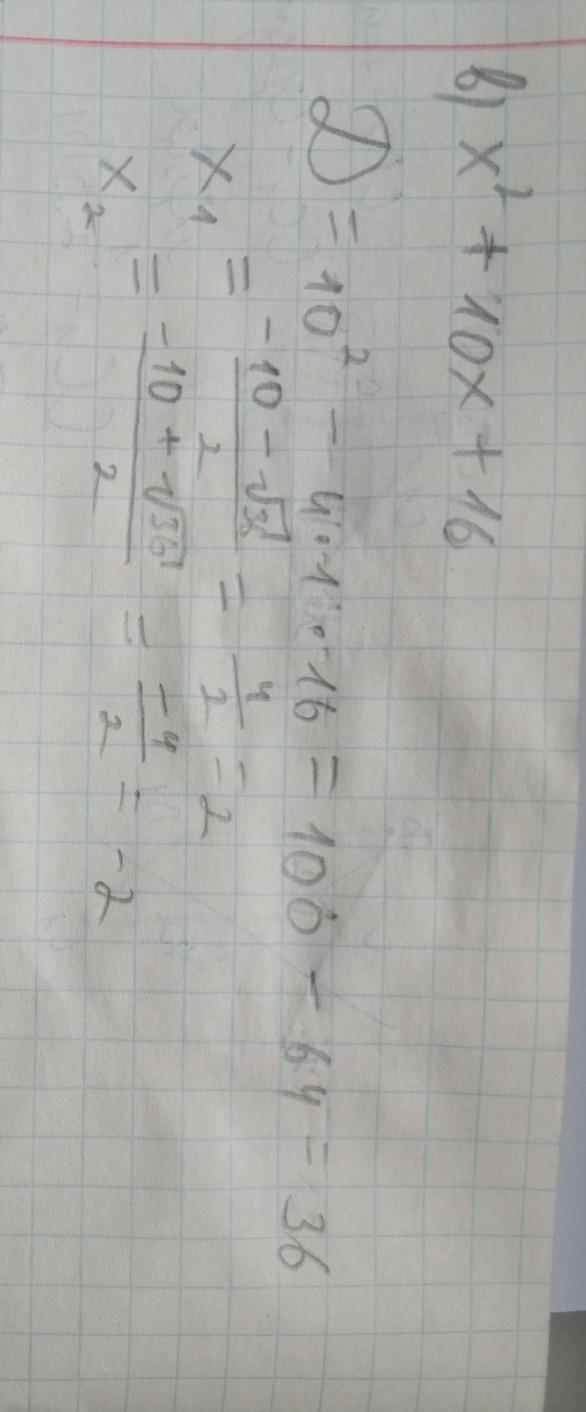 в) x² + 10x + 16
D = 10² - 4·1·16 = 100 - 64 = 36
x₁ = (-10 - √36)/2 = 4/2 = 2
x₂ = (-10 + √36)/2 = -4/2 = -2